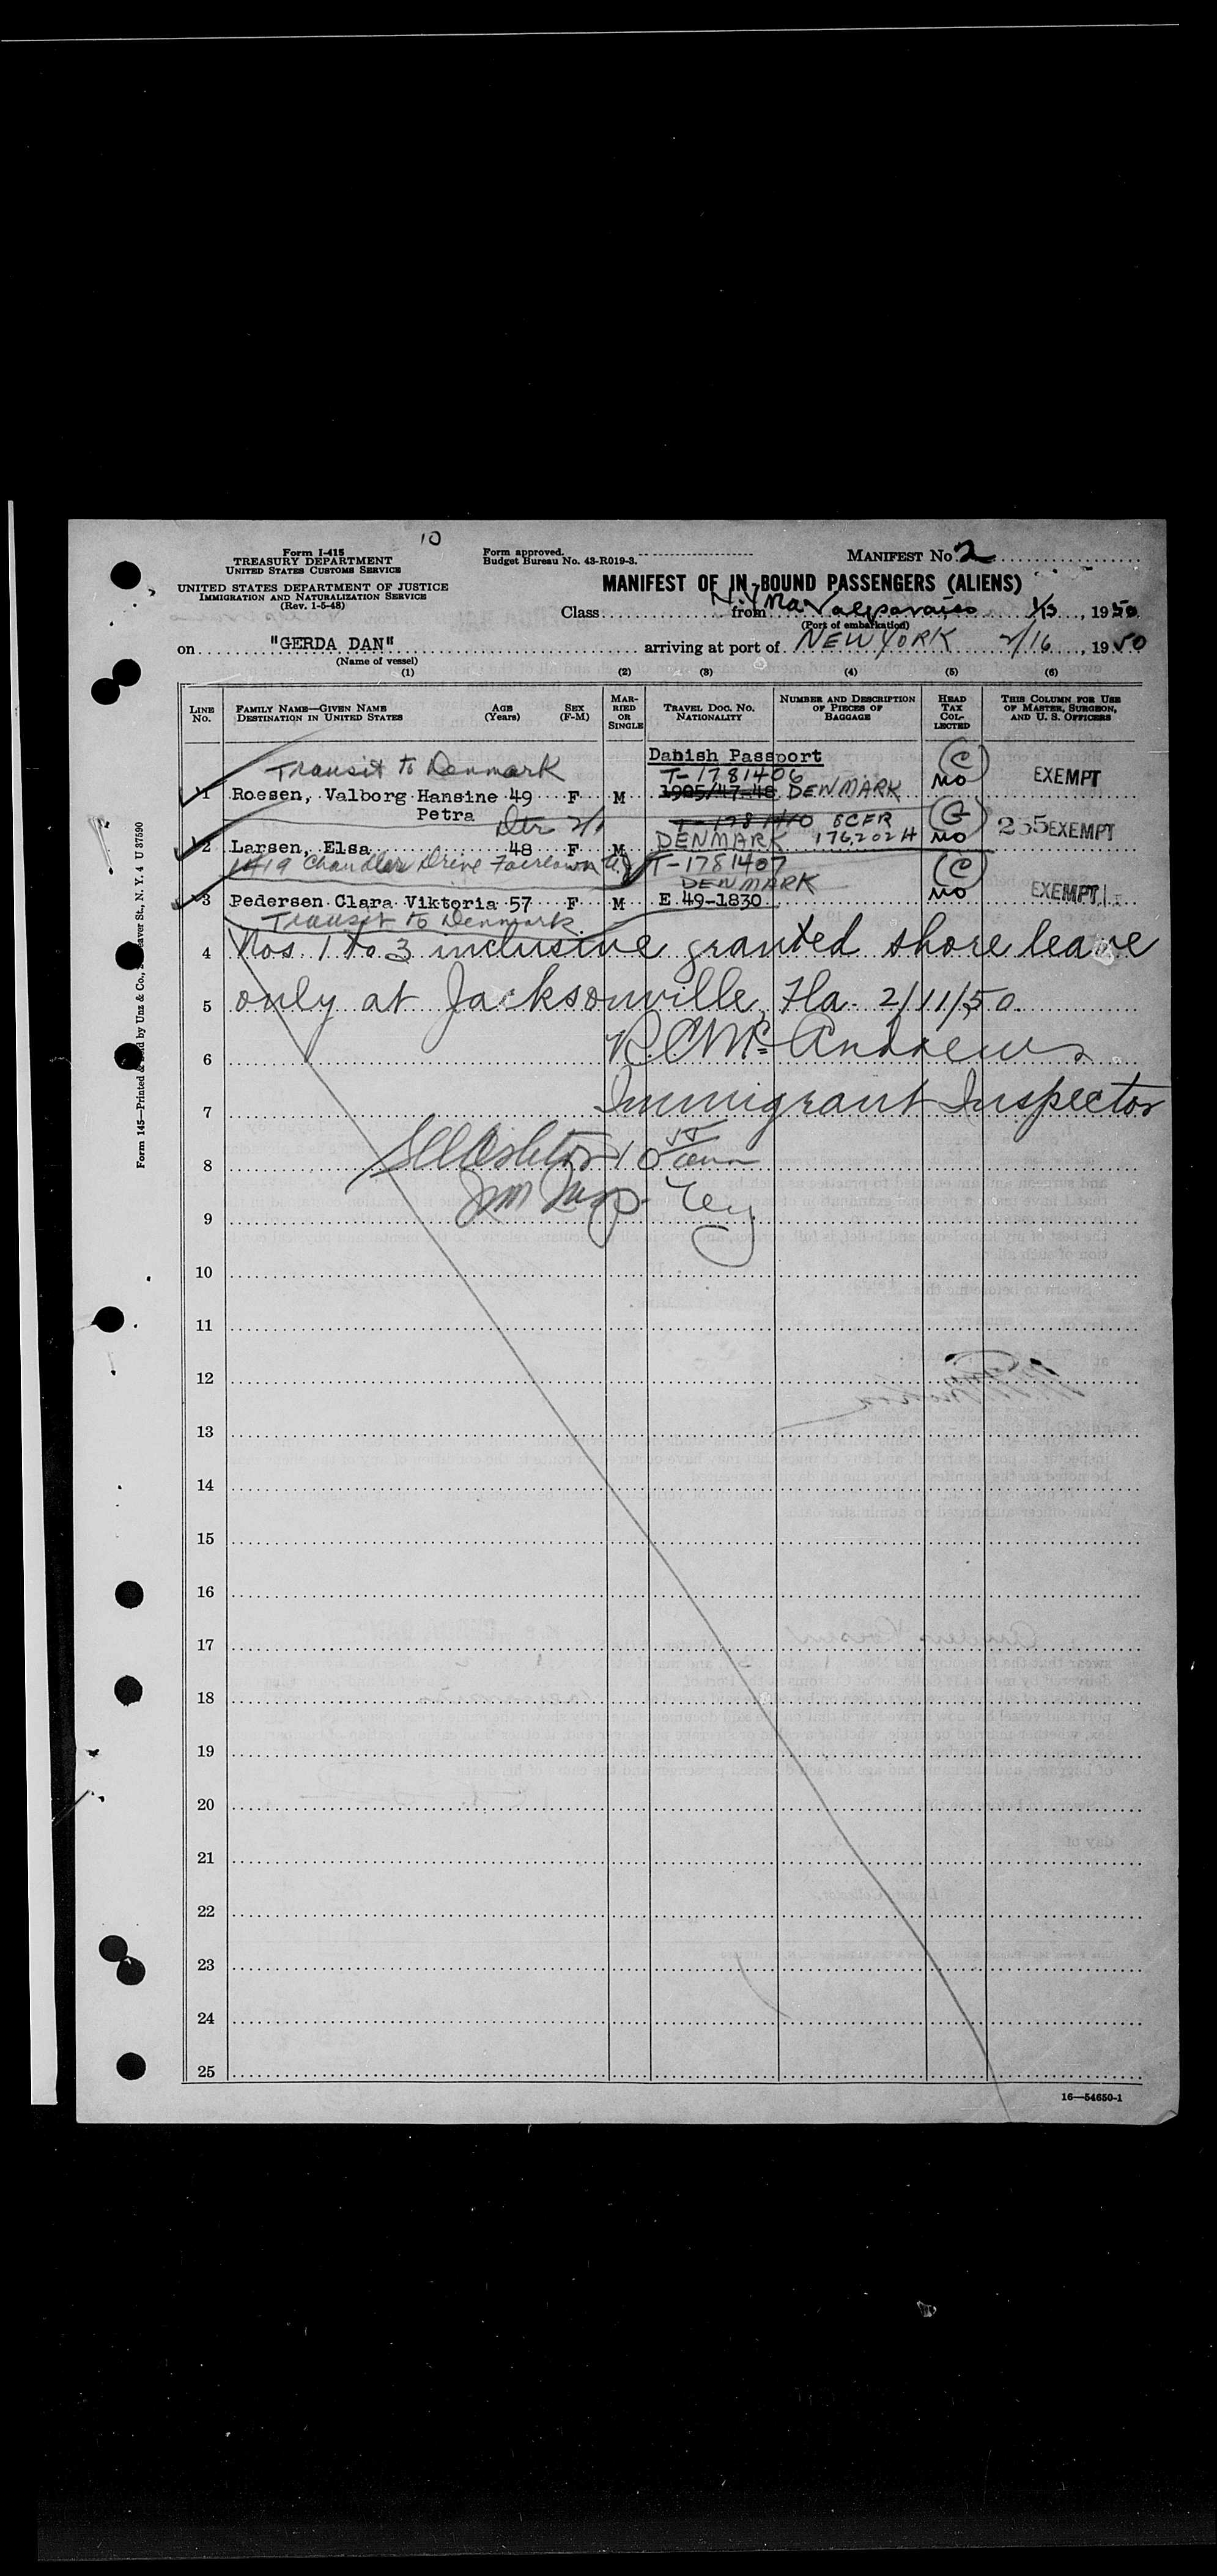 10
Form I-415
TREASURY DEPARTMENT
UNITED STATES CUSTOMS SERVICE
UNITED STATES DEPARTMENT OF JUSTICE
IMMIGRATION AND NATURALIZATION SERVICE
(Rev. 1-5-48)
Form approved.
Budget Bureau No. 43-R019-3.
MANIFEST No. 2
MANIFEST OF IN-BOUND PASSENGERS (ALIENS)
Class from Valparaiso 1/13, 1950
(Port of embarkation)
on "GERDA DAN" arriving at port of NEW YORK 2/16, 1950
(Name of vessel)
(1) (2) (3) (4) (5) (6)
LINE No.
FAMILY NAME—GIVEN NAME
DESTINATION IN UNITED STATES
AGE (Years)
SEX (F-M)
MARRIED OR SINGLE
TRAVEL DOC. NO.
NATIONALITY
NUMBER AND DESCRIPTION OF PIECES OF BAGGAGE
HEAD TAX COLLECTED
THIS COLUMN FOR USE OF MASTER, SURGEON, AND U. S. OFFICERS
Danish Passport
Transit to Denmark T-1781406 (C)
1 Roesen, Valborg Hansine 49 F M 1905/47-48 DENMARK NO EXEMPT
Petra
Dtr T-1781410 8CFR
2 Larsen, Elsa 48 F M DENMARK 176.202H NO 255 EXEMPT
1419 Chandler Drive Fairlawn N.J. T-1781407 (C)
DENMARK
3 Pedersen Clara Viktoria 57 F M E 49-1830 NO EXEMPT
Transit to Denmark
4 Nos. 1 to 3 inclusive granted shore leave
5 only at Jacksonville, Fla. 2/11/50.
6 R.C. McAndrews
7 Immigrant Inspector
8
9
10
11
12
13
14
15
16
17
18
19
20
21
22
23
24
25
16—54650-1
Form 145—Printed & Sold by Unz & Co., Beaver St., N. Y. 4 U 37590